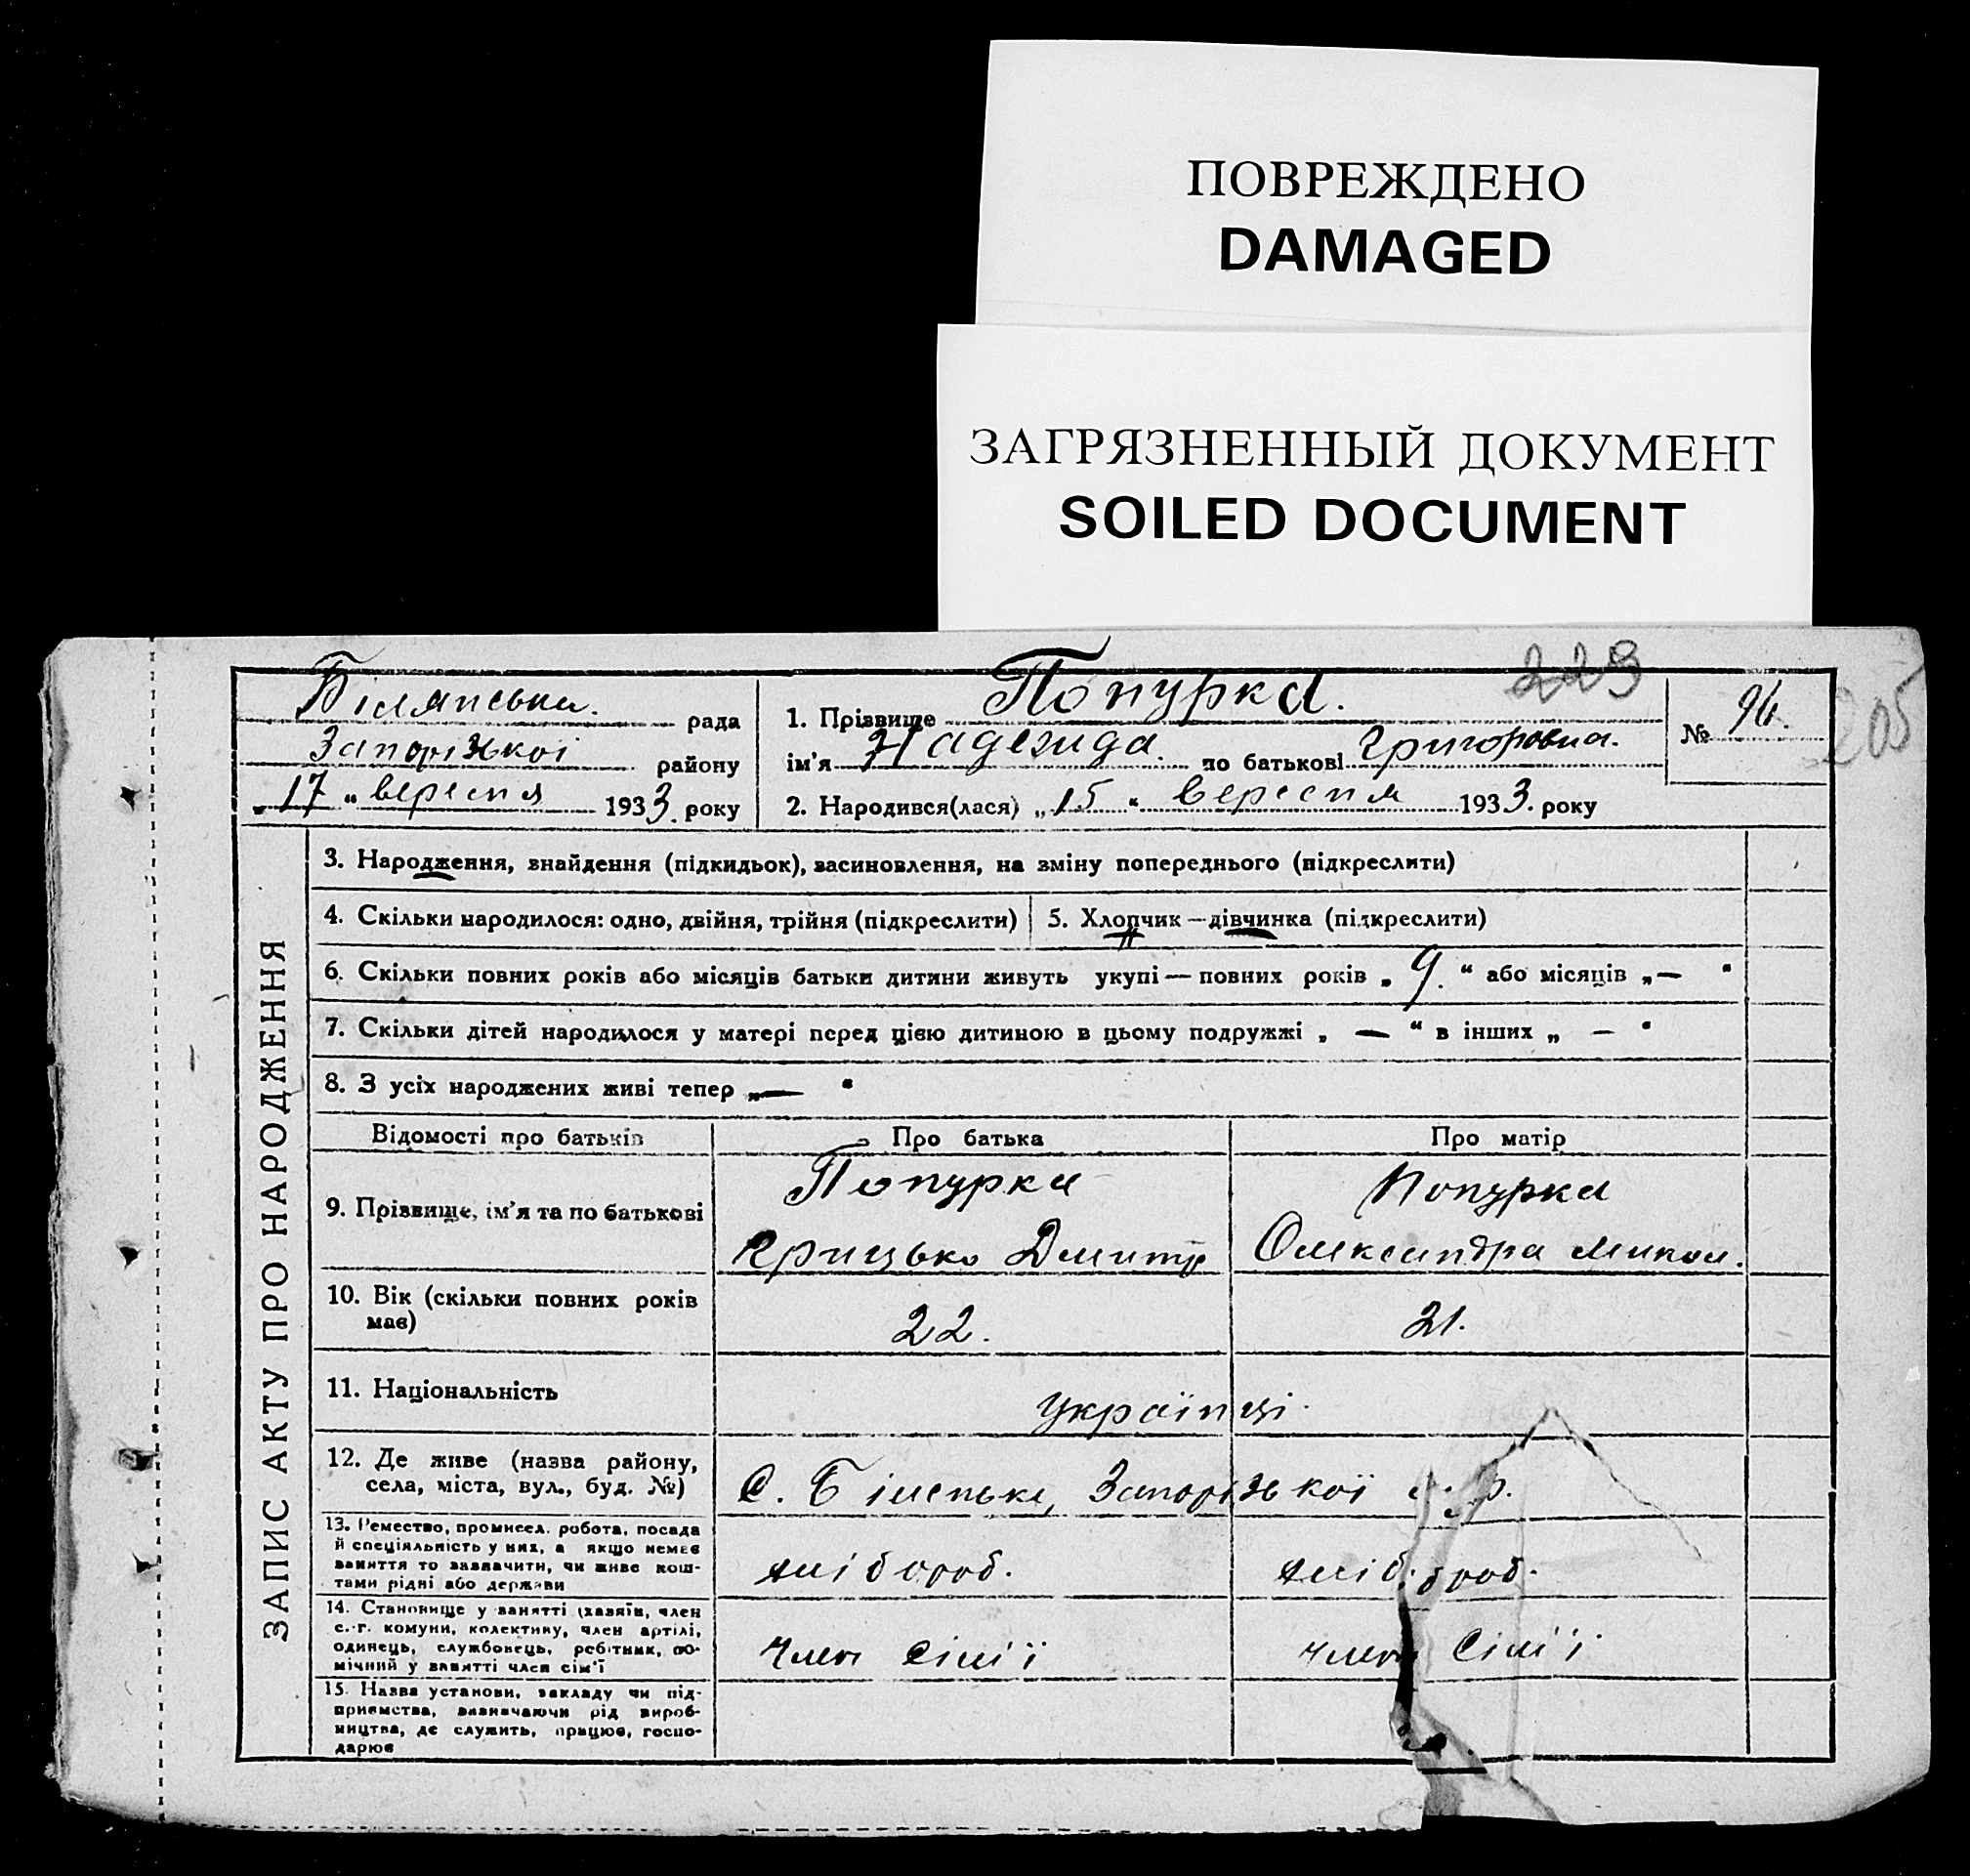 ПОВРЕЖДЕНО
DAMAGED
ЗАГРЯЗНЕННЫЙ ДОКУМЕНТ
SOILED DOCUMENT
229
205
Білянська. рада
Запорізької району
„17“ вересня 1933. року
1. Прізвище Попурка.
ім'я Надежида по батькові Григоровна.
№ 96.
2. Народився(лася) „15“ Вересня 1933. року
ЗАПИС АКТУ ПРО НАРОДЖЕННЯ
3. Народження, знайдення (підкидьок), засиновлення, на зміну попереднього (підкреслити)
4. Скільки народилося: одно, двійня, трійня (підкреслити) 5. Хлопчик — дівчинка (підкреслити)
6. Скільки повних років або місяців батьки дитини живуть укупі — повних років „9.“ або місяців „—“
7. Скільки дітей народилося у матері перед цією дитиною в цьому подружжі „—“ в інших „—“
8. З усіх народжених живі тепер „—“
Відомості про батьків Про батька Про матір
9. Прізвище, ім'я та по батькові Попурка Попурка
Грицько Дмитр Олександра Микол.
10. Вік (скільки повних років
має) 22. 21.
11. Національність Українці.
12. Де живе (назва району,
села, міста, вул., буд. №) С. Біленьке, Запорізької
13. Ремество, промисел, робота, посада
й спеціяльність у них, а якщо немає
заняття то зазначити, чи живе кош-
тами рідні або держави
хлібороб. хлібороб.
14. Становище у занятті (хазяїн, член
с.-г. комуни, колективу, член артілі,
одинець, службовець, робітник, по-
мічний у занятті член сім'ї
Член сім'ї член сім'ї
15. Назва установи, закладу чи під-
приємства, зазначаючи рід вироб-
ництва, де служить, працює, госпо-
дарює